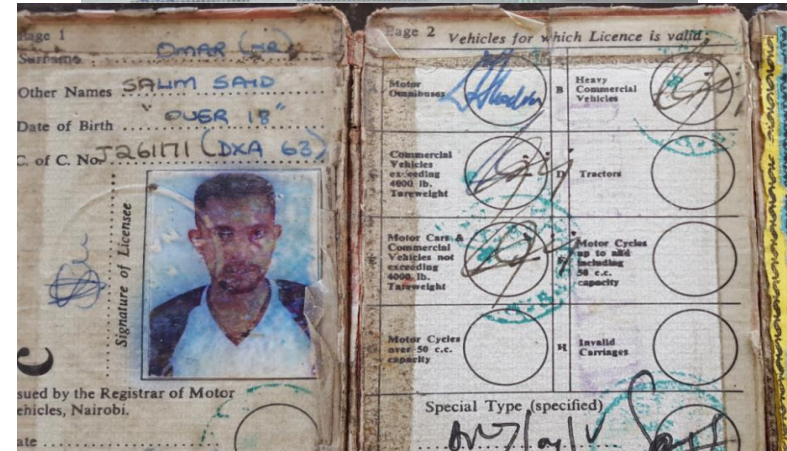 Page 1
Surname OMAR (MR)
Other Names SALIM SAID
Date of Birth "OVER 18"
C. of C. No. J261171 (DXA 63)
Signature of Licensee
C
sued by the Registrar of Motor
ehicles, Nairobi.
ate
Page 2 Vehicles for which Licence is valid
Motor
Omnibuses
B
Heavy
Commercial
Vehicles
Commercial
Vehicles
exceeding
4000 lb.
Tareweight
D
Tractors
Motor Cars &
Commercial
Vehicles not
exceeding
4000 lb.
Tareweight
Motor Cycles
up to and
including
50 c.c.
capacity
Motor Cycles
over 50 c.c.
capacity
H
Invalid
Carriages
Special Type (specified)